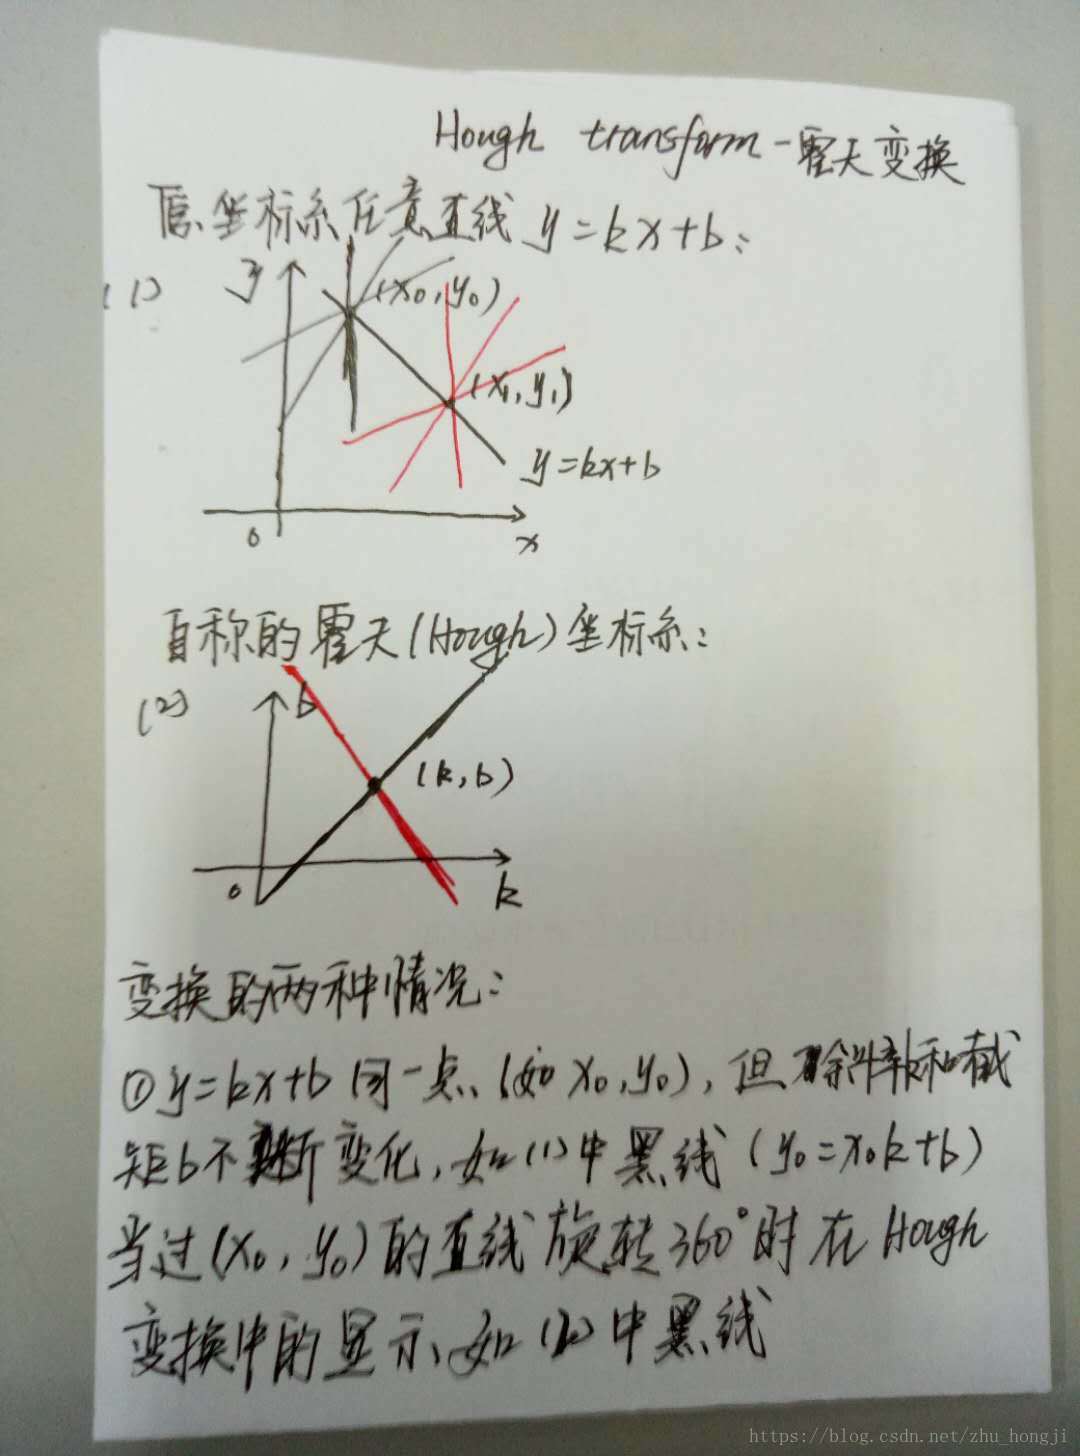 Hough transform-霍夭变换
原坐标系任意直线 y=kx+b:
(1)
y
(x₀,y₀)
(x₁,y₁)
y=kx+b
0
x
自称的霍夭(Hough)坐标系:
(2)
b
(k,b)
0
k
变换的两种情况:
①y=kx+b 同一点(如 x₀,y₀),但斜率k和截
矩b不断变化,如(1)中黑线(y₀=x₀k+b)
当过(x₀,y₀)的直线旋转360°时在Hough
变换中的显示、如(2)中黑线
https://blog.csdn.net/zhu_hongji